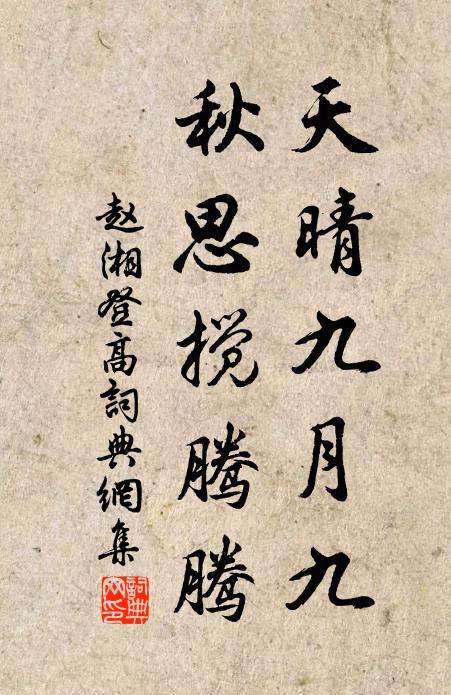 天晴九月九
秋思搅腾腾
赵湘登高詞典網集
詞典网印